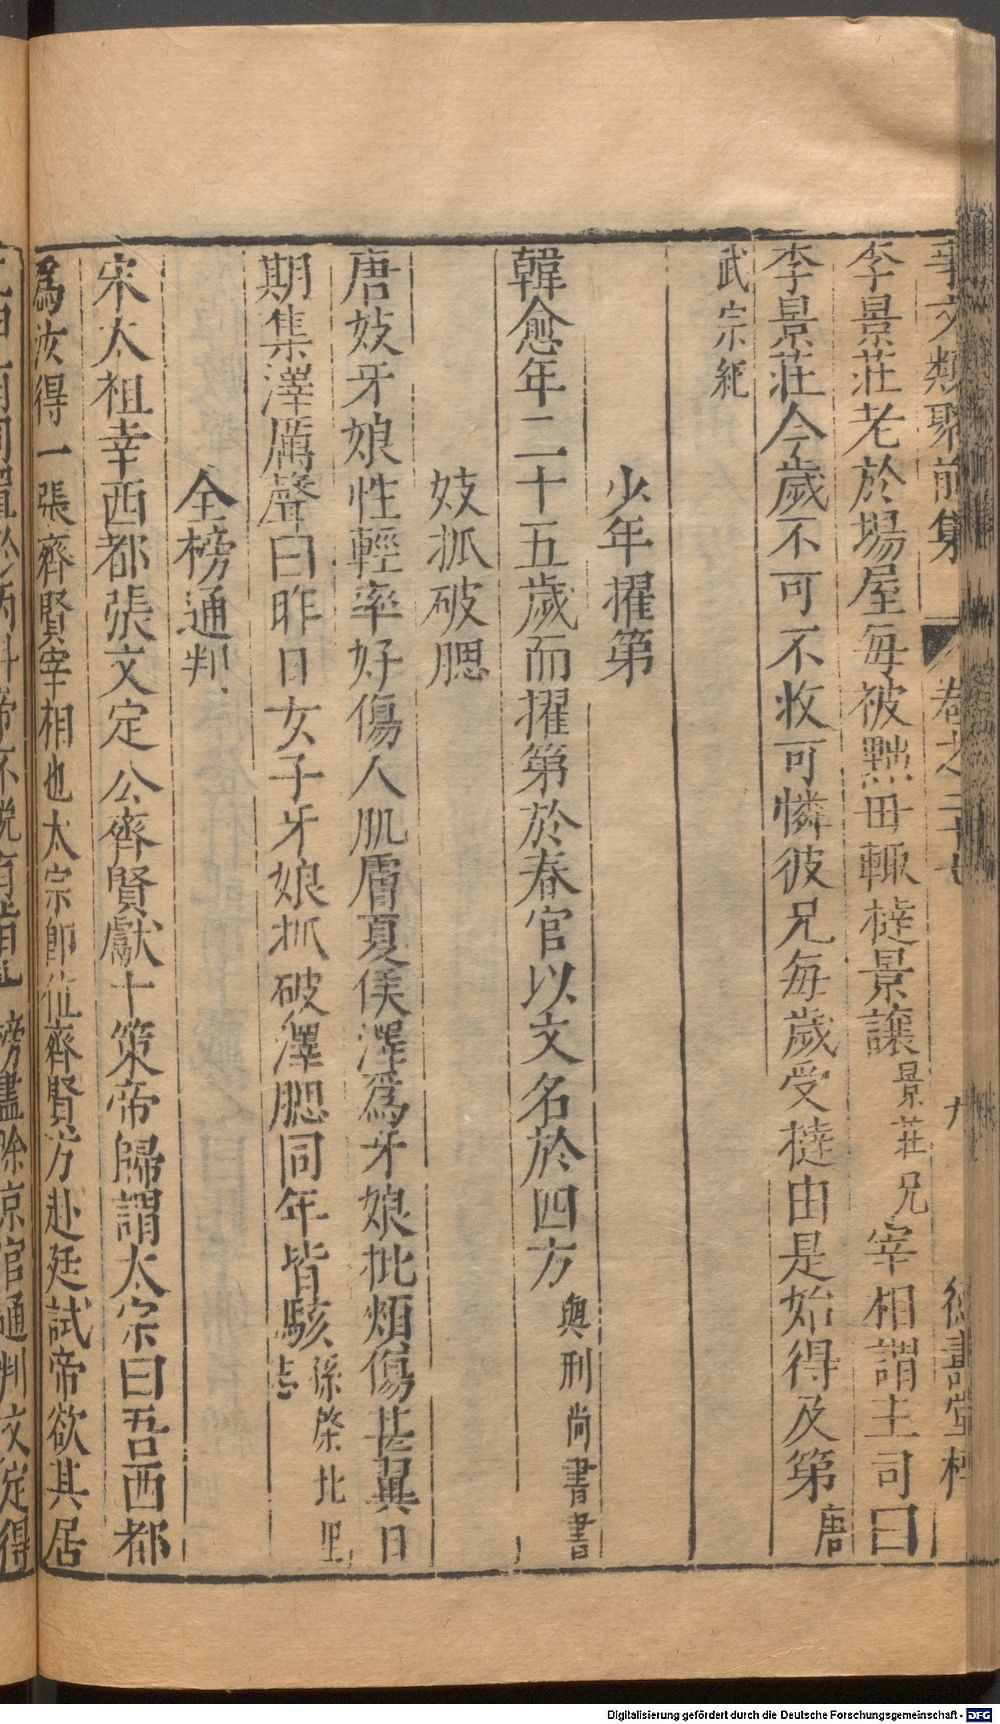 事文類聚前集 卷之二十 九 德壽堂梓
李景莊老於場屋每被黜毋輙撻景讓景莊兄宰相謂主司曰
李景莊今歲不可不收可憐彼兄每歲受撻由是始得及第唐
武宗紀
少年擢第
韓愈年二十五歲而擢第於春官以文名於四方與刑尚書書
妓抓破腮
唐妓牙娘性輕率好傷人肌膚夏侯澤爲牙娘批頰傷甚翼日
期集澤厲聲曰昨日女子牙娘抓破澤腮同年皆駭孫棨北里志
全榜通判
宋太祖幸西都張文定公齊賢獻十策帝歸謂太宗曰吾西都
爲汝得一張齊賢宰相也太宗卽位齊賢方赴廷試帝欲其居
科帝不悅有旨 榜盡除京官通判文定得
Digitalisierung gefördert durch die Deutsche Forschungsgemeinschaft - DFG